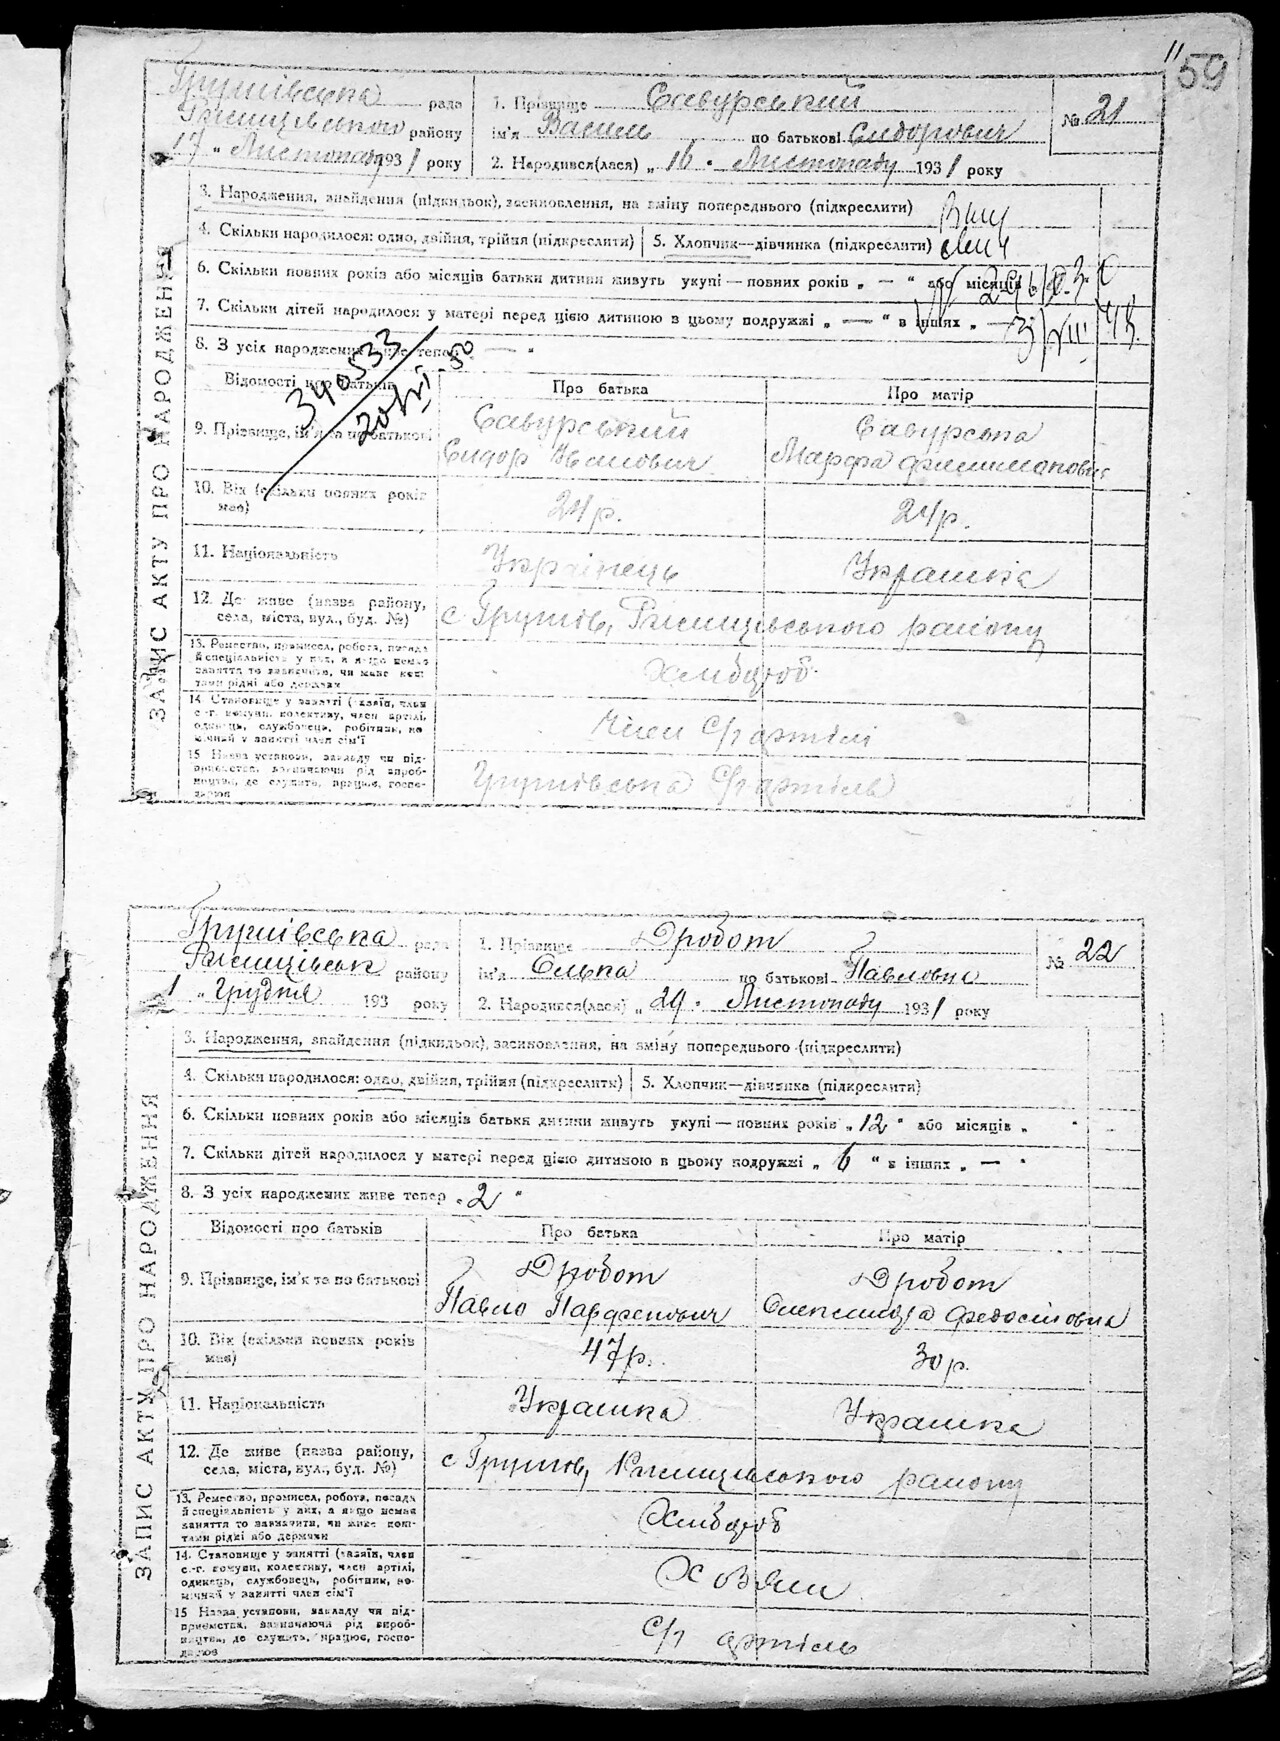 59
Грушівська рада
Ржищівського району
„17 „ Листопаду 1931 року
1. Прізвище Савурський
ім'я Василь по батькові Сидорович
2. Народився(лася) „ 16 . Листопаду 1931 року
№ 21
ЗАПИС АКТУ ПРО НАРОДЖЕННЯ
3. Народження, знайдення (підкидьок), засиновлення, на зміну попереднього (підкреслити)
4. Скільки народилося: одно, двійня, трійня (підкреслити) 5. Хлопчик—дівчинка (підкреслити)
6. Скільки повних років або місяців батьки дитини живуть укупі — повних років „ — “ або місяців
7. Скільки дітей народилося у матері перед цією дитиною в цьому подружжі „ — “ в інших „ —
8. З усіх народжених живе тепер — “
340533
Відомості про батьків Про батька Про матір
9. Прізвище, ім'я та по батькові
Савурський Савурська
Сидор Іванович Марфа Филимоновна
10. Вік (скільки повних років має) 24 р. 24 р.
11. Національність Українець Українка
12. Де живе (назва району,
села, міста, вул., буд. №) с Грушів, Ржищівського району
13. Ремество, промисел, робота, посада
й спеціяльність у них, а якщо немає
заняття то зазначити, чи живе кош-
тами рідні або держави
Хлібороб
14. Становище у занятті (хазяїн, член
с.-г. комуни, колективу, член артілі,
одинець, службовець, робітник, по-
мічний у занятті член сім'ї
Член С/г артілі
15 Назва установи, закладу чи під-
приємства, зазначаючи рід вироб-
ництва, де служить, працює, госпо-
дарює
Грушівська С/г артіль
Грушівська рада
Ржищівськ району
„1 „ Грудня 193 року
1. Прізвище Дробот
ім'я Олька по батькові Павловна
2. Народився(лася) „ 29 . Листопаду 1931 року
№ 22
ЗАПИС АКТУ ПРО НАРОДЖЕННЯ
3. Народження, знайдення (підкидьок), засиновлення, на зміну попереднього (підкреслити)
4. Скільки народилося: одно, двійня, трійня (підкреслити) 5. Хлопчик—дівчинка (підкреслити)
6. Скільки повних років або місяців батьки дитини живуть укупі — повних років „ 12 “ або місяців „ “
7. Скільки дітей народилося у матері перед цією дитиною в цьому подружжі „ 6 “ в інших „ — “
8. З усіх народжених живе тепер „ 2 “
Відомості про батьків Про батька Про матір
9. Прізвище, ім'я та по батькові
Дробот Дробот
Павло Парфенович Олександра Федосіовна
10. Вік (скільки повних років має) 47 р. 30 р.
11. Національність Українка Українка
12. Де живе (назва району,
села, міста, вул., буд. №) с Грушів, Ржищівського району
13. Ремество, промисел, робота, посада
й спеціяльність у них, а якщо немає
заняття то зазначити, чи живе кош-
тами рідні або держави
Хлібороб
14. Становище у занятті (хазяїн, член
с.-г. комуни, колективу, член артілі,
одинець, службовець, робітник, по-
мічний у занятті член сім'ї
Хозяин
15 Назва установи, закладу чи під-
приємства, зазначаючи рід вироб-
ництва, де служить, працює, госпо-
дарює
С/г артіль